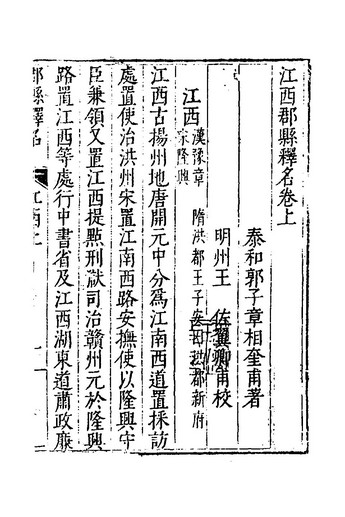 江西郡縣釋名卷上
泰和郭子章相奎甫著
明州王　佐翼卿甫校
江西 漢豫章 隋洪都王子安曰洪都新府
宗隆興
江西古揚州地唐開元中分爲江南西道置採訪
處置使治洪州宋置江南西路安撫使以隆興守
臣兼領又置江西提㸃刑獄司治贛州元於隆興
路置江西等處行中書省及江西湖東道肅政廉
郡縣釋名 江西上